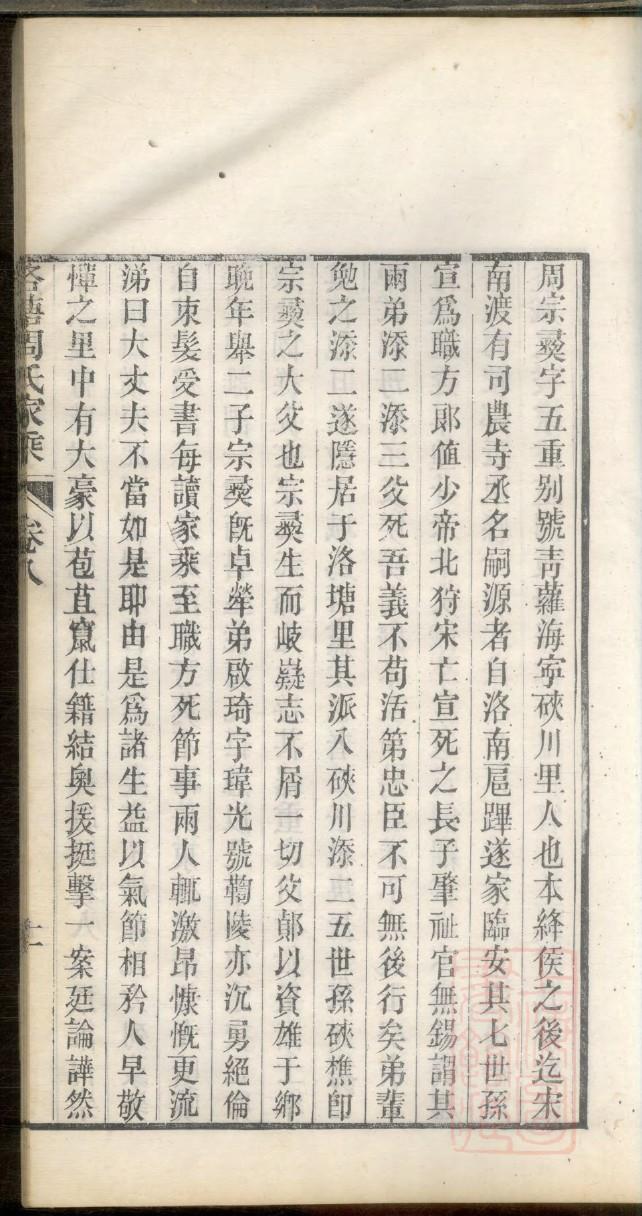 周宗彝字五重别號靑蘿海寧硤川里人也本絳侯之後迄宋
南渡有司農寺丞名嗣源者自洛南扈蹕遂家臨安其七世孫
宣爲職方郎値少帝北狩宋亡宣死之長子肇祉官無錫謂其
兩弟添二添三父死吾義不苟活第忠臣不可無後行矣弟輩
勉之添二遂隱居于洛塘里其派入硤川添二五世孫硤樵卽
宗彝之大父也宗彝生而岐嶷志不屑一切父鄖以資雄于鄉
晚年舉二子宗彝旣卓犖弟啟琦字瑋光號鞠陵亦沉勇絕倫
自束髮受書每讀家乘至職方死節事兩人輒激昂慷慨更流
涕曰大丈夫不當如是耶由是爲諸生益以氣節相矜人早敬
憚之里中有大豪以苞苴竄仕籍結奧援挺擊一案廷論譁然
洛塘周氏家乘 卷八